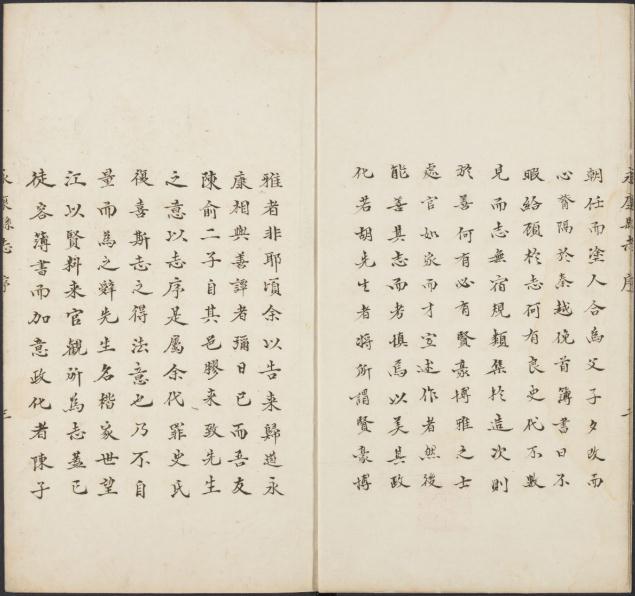 朝任而塗人合為父子夕改而
心膂隔於秦越俛首簿書日不
暇給顧於志何有良史代不數
見而志無宿規類集於造次則
於善何有必有賢豪博雅之士
處官如家而才宜述作者然後
能善其志而考慎焉以美其政
化若胡先生者將所謂賢豪博
雅者非耶頃余以告來歸道永
康相與善譚者彌日已而吾友
陳俞二子自其邑膠來致先生
之意以志序是屬余代罪史氏
復喜斯志之得法意也乃不自
量而為之辭先生名楷家世望
江以賢科來官觀所為志蓋已
從容簿書而加意政化者陳子
永康縣志 序 三